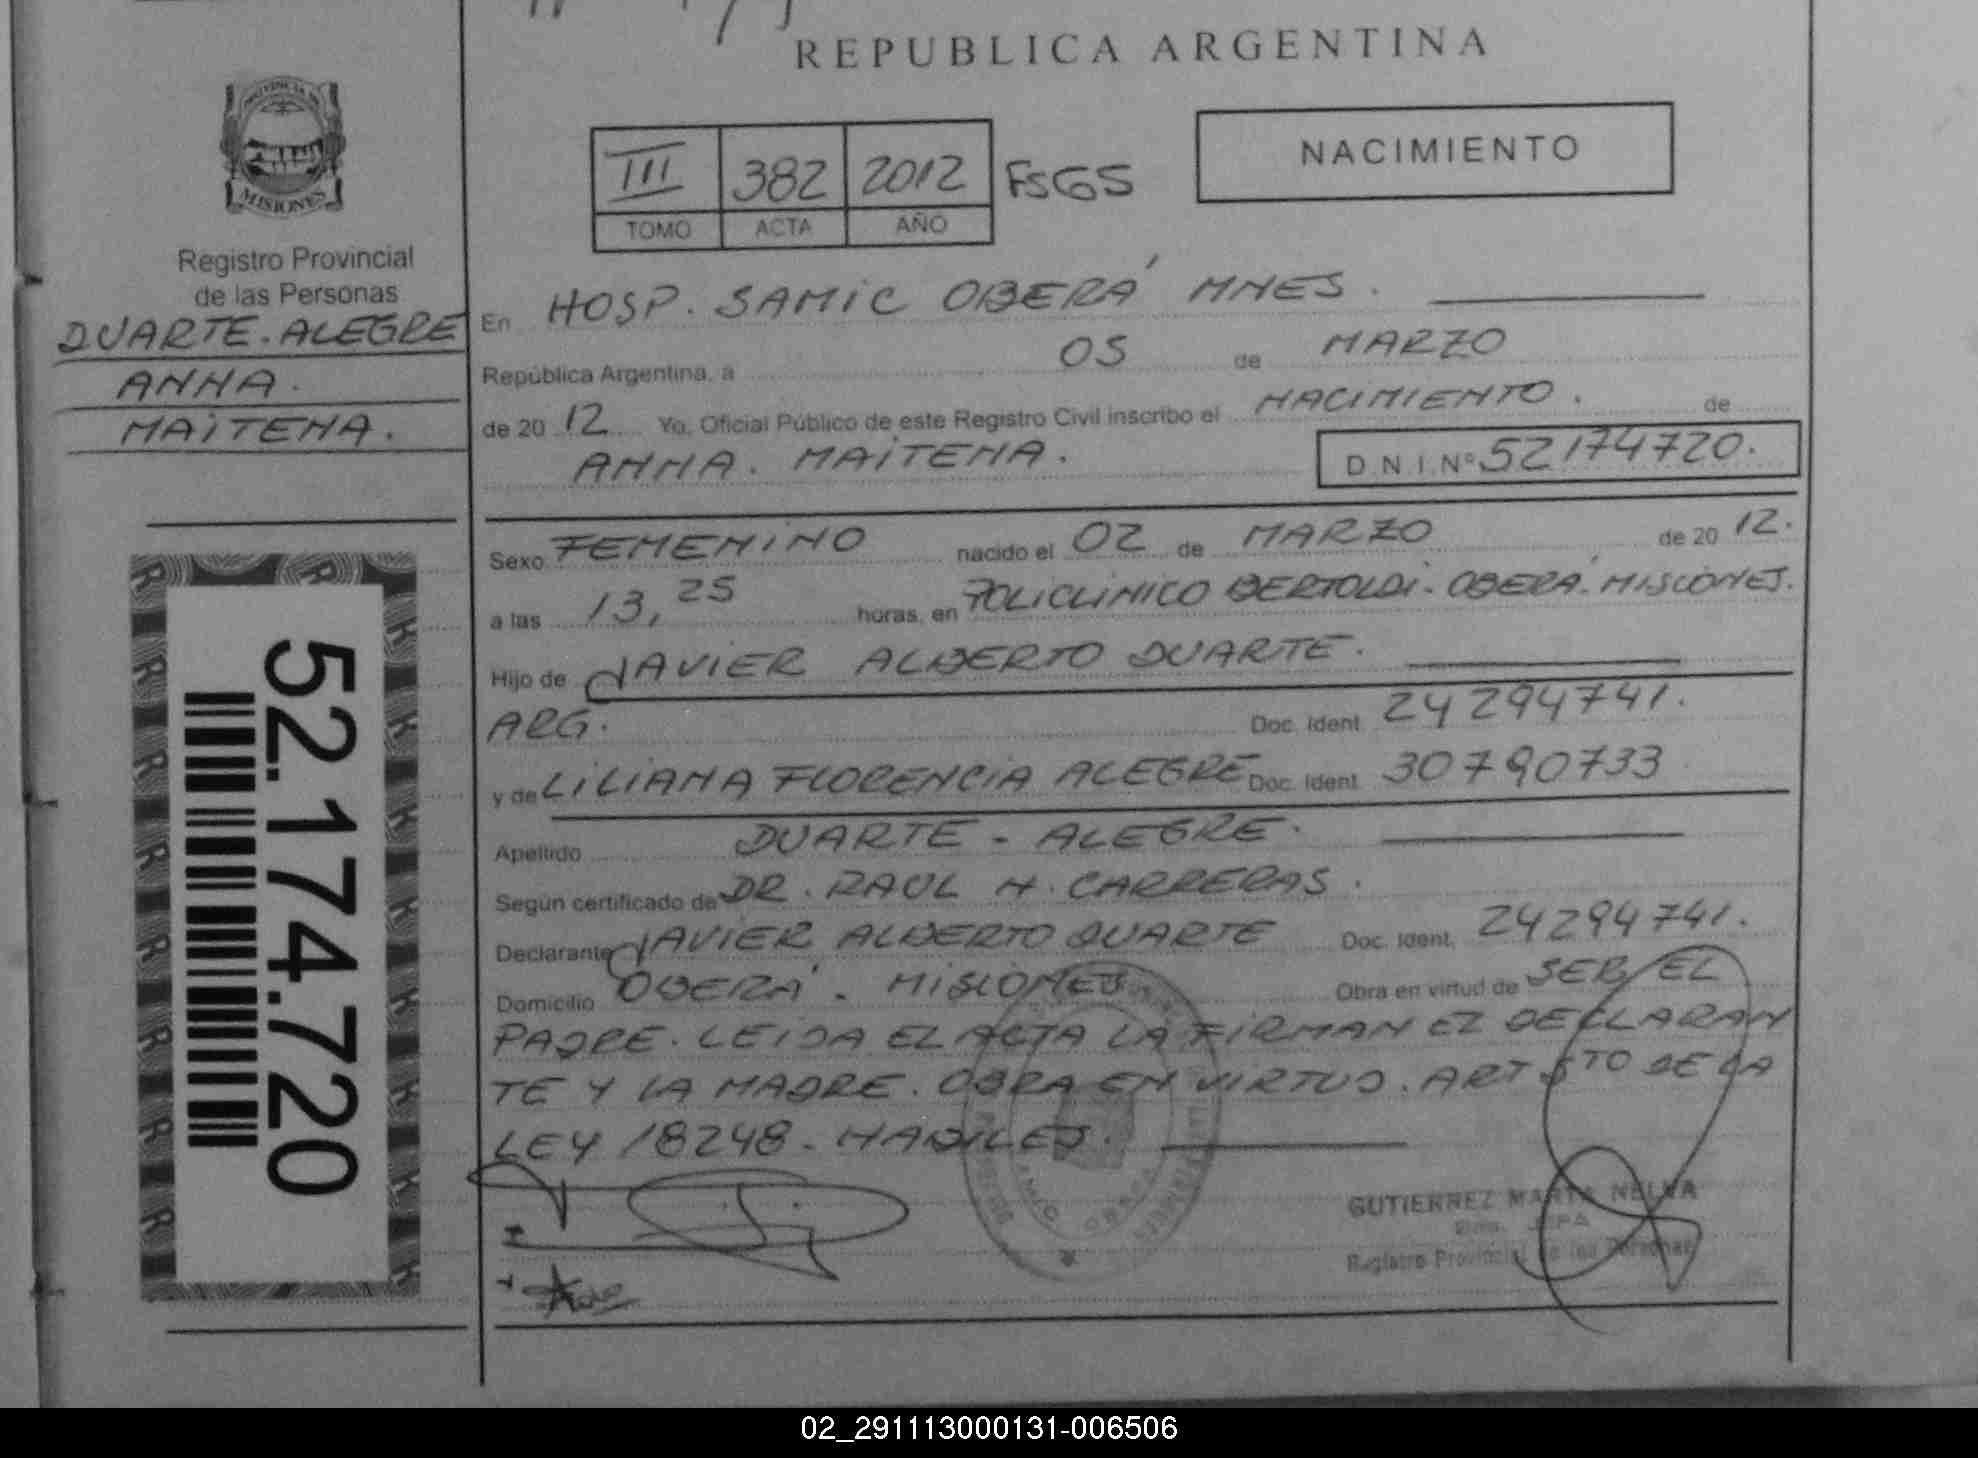 REPUBLICA ARGENTINA
PROVINCIA DE
MISIONES
Registro Provincial
de las Personas
DUARTE. ALEGRE
ANNA.
MAITENA.
52.174.720
III 382 2012 FSGS
TOMO ACTA AÑO
NACIMIENTO
En HOSP. SAMIC OBERÁ MNES.
República Argentina, a 05 de MARZO
de 20 12 Yo, Oficial Público de este Registro Civil inscribo el NACIMIENTO. de
ANNA. MAITENA. D.N.I.Nº 52174720.
Sexo FEMENINO nacido el 02 de MARZO de 20 12.
a las 13,25 horas, en POLICLINICO BERTOLDI. OBERÁ. MISIONES.
Hijo de JAVIER ALBERTO DUARTE.
ARG. Doc. Ident. 24294741.
y de LILIANA FLORENCIA ALEGRE Doc. Ident. 30790733
Apellido DUARTE - ALEGRE.
Según certificado de DR. RAUL H. CARRERAS.
Declarante JAVIER ALBERTO DUARTE Doc. Ident. 24294741.
Domicilio OBERÁ. MISIONES Obra en virtud de SER EL
PADRE. LEIDA EL ACTA LA FIRMAN EL DECLARAN
TE Y LA MADRE. OBRA EN VIRTUD. ART 5TO DE LA
LEY 18248. HABILES.
GUTIERREZ MARTA
Registro Provincial de las Personas
02_291113000131-006506